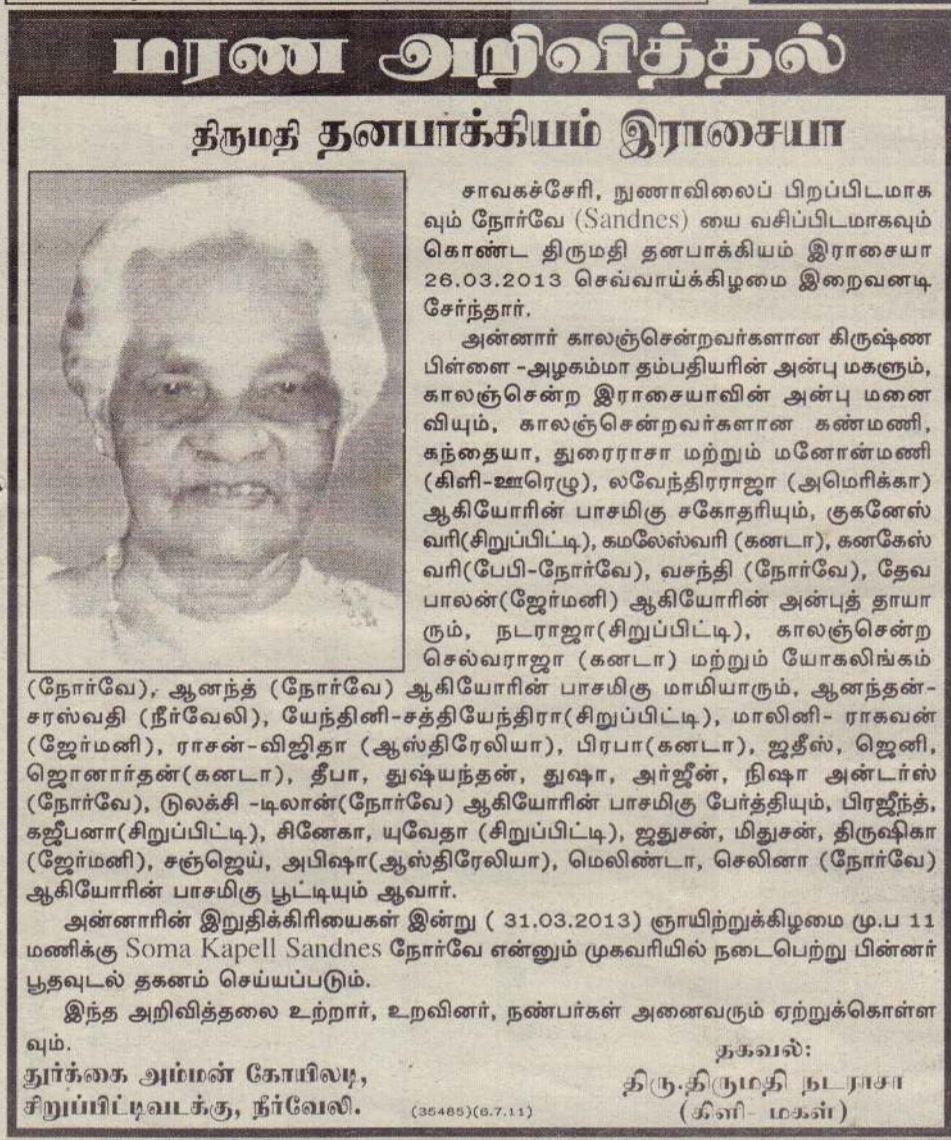 மரண அறிவித்தல்
திருமதி தனபாக்கியம் இராசையா
சாவகச்சேரி, நுணாவிலைப் பிறப்பிடமாக
வும் நோர்வே (Sandnes) யை வசிப்பிடமாகவும்
கொண்ட திருமதி தனபாக்கியம் இராசையா
26.03.2013 செவ்வாய்க்கிழமை இறைவனடி
சேர்ந்தார்.
அன்னார் காலஞ்சென்றவர்களான கிருஷ்ண
பிள்ளை -அழகம்மா தம்பதியரின் அன்பு மகளும்,
காலஞ்சென்ற இராசையாவின் அன்பு மனை
வியும், காலஞ்சென்றவர்களான கண்மணி,
கந்தையா, துரைராசா மற்றும் மனோன்மணி
(கிளி-ஊரெழு), லவேந்திரராஜா (அமெரிக்கா)
ஆகியோரின் பாசமிகு சகோதரியும், குகனேஸ்
வரி(சிறுப்பிட்டி), கமலேஸ்வரி (கனடா), கனகேஸ்
வரி(பேபி-நோர்வே), வசந்தி (நோர்வே), தேவ
பாலன்(ஜேர்மனி) ஆகியோரின் அன்புத் தாயா
ரும், நடராஜா(சிறுப்பிட்டி), காலஞ்சென்ற
செல்வராஜா (கனடா) மற்றும் யோகலிங்கம்
(நோர்வே), ஆனந்த் (நோர்வே) ஆகியோரின் பாசமிகு மாமியாரும், ஆனந்தன்-
சரஸ்வதி (நீர்வேலி), யேந்தினி-சத்தியேந்திரா(சிறுப்பிட்டி), மாலினி- ராகவன்
(ஜேர்மனி), ராசன்-விஜிதா (ஆஸ்திரேலியா), பிரபா(கனடா), ஜதீஸ், ஜெனி,
ஜொனார்தன்(கனடா), தீபா, துஷ்யந்தன், துஷா, அர்ஜீன், நிஷா அன்டர்ஸ்
(நோர்வே), டுலக்சி -டிலான்(நோர்வே) ஆகியோரின் பாசமிகு பேர்த்தியும், பிரஜீந்த்,
கஜீபனா(சிறுப்பிட்டி), சினேகா, யுவேதா (சிறுப்பிட்டி), ஜதுசன், மிதுசன், திருஷிகா
(ஜேர்மனி), சஞ்ஜெய், அபிஷா(ஆஸ்திரேலியா), மெலிண்டா, செலினா (நோர்வே)
ஆகியோரின் பாசமிகு பூட்டியும் ஆவார்.
அன்னாரின் இறுதிக்கிரியைகள் இன்று ( 31.03.2013) ஞாயிற்றுக்கிழமை மு.ப 11
மணிக்கு Soma Kapell Sandnes நோர்வே என்னும் முகவரியில் நடைபெற்று பின்னர்
பூதவுடல் தகனம் செய்யப்படும்.
இந்த அறிவித்தலை உற்றார், உறவினர், நண்பர்கள் அனைவரும் ஏற்றுக்கொள்ள
வும்.
துர்க்கை அம்மன் கோயிலடி,
சிறுப்பிட்டிவடக்கு, நீர்வேலி.
(35485)(6.7.11)
தகவல்:
திரு.திருமதி நடராசா
(கிளி- மகள்)